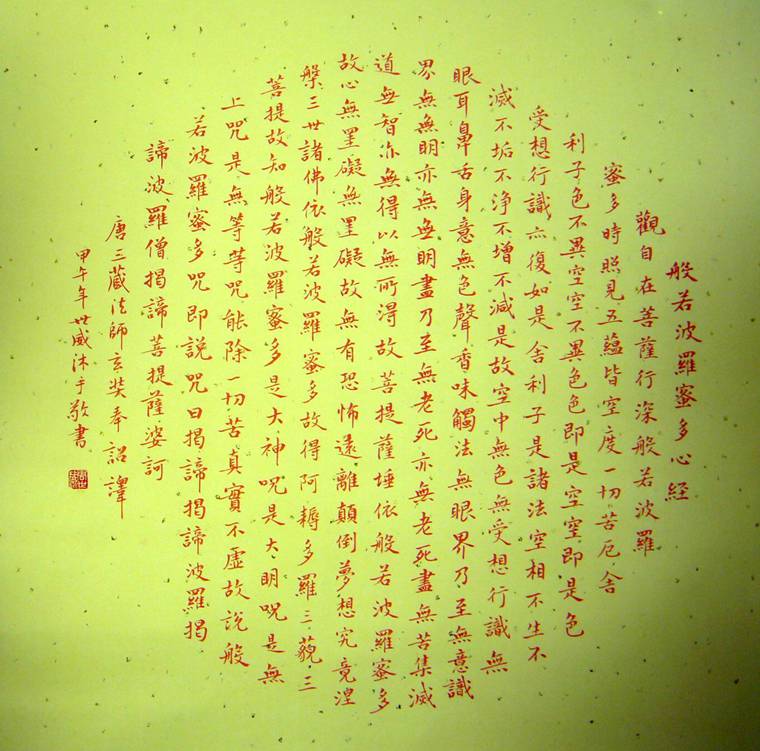 般若波羅蜜多心経
觀自在菩薩行深般若波羅
蜜多時照見五蘊皆空度一切苦厄舍
利子色不異空空不異色色即是空空即是色
受想行識亦復如是舍利子是諸法空相不生不
滅不垢不浄不增不減是故空中無色無受想行識無
眼耳鼻舌身意無色聲香味觸法無眼界乃至無意識
界無無明亦無無明盡乃至無老死亦無老死盡無苦集滅
道無智亦無得以無所得故菩提薩埵依般若波羅蜜多
故心無罣礙無罣礙故無有恐怖遠離顛倒夢想究竟涅
槃三世諸佛依般若波羅蜜多故得阿耨多羅三藐三
菩提故知般若波羅蜜多是大神咒是大明咒是無
上咒是無等等咒能除一切苦真實不虛故說般
若波羅蜜多咒即說咒曰揭諦揭諦波羅揭
諦波羅僧揭諦菩提薩婆訶
唐三藏法師玄奘奉詔譯
甲午年世威沐手敬書